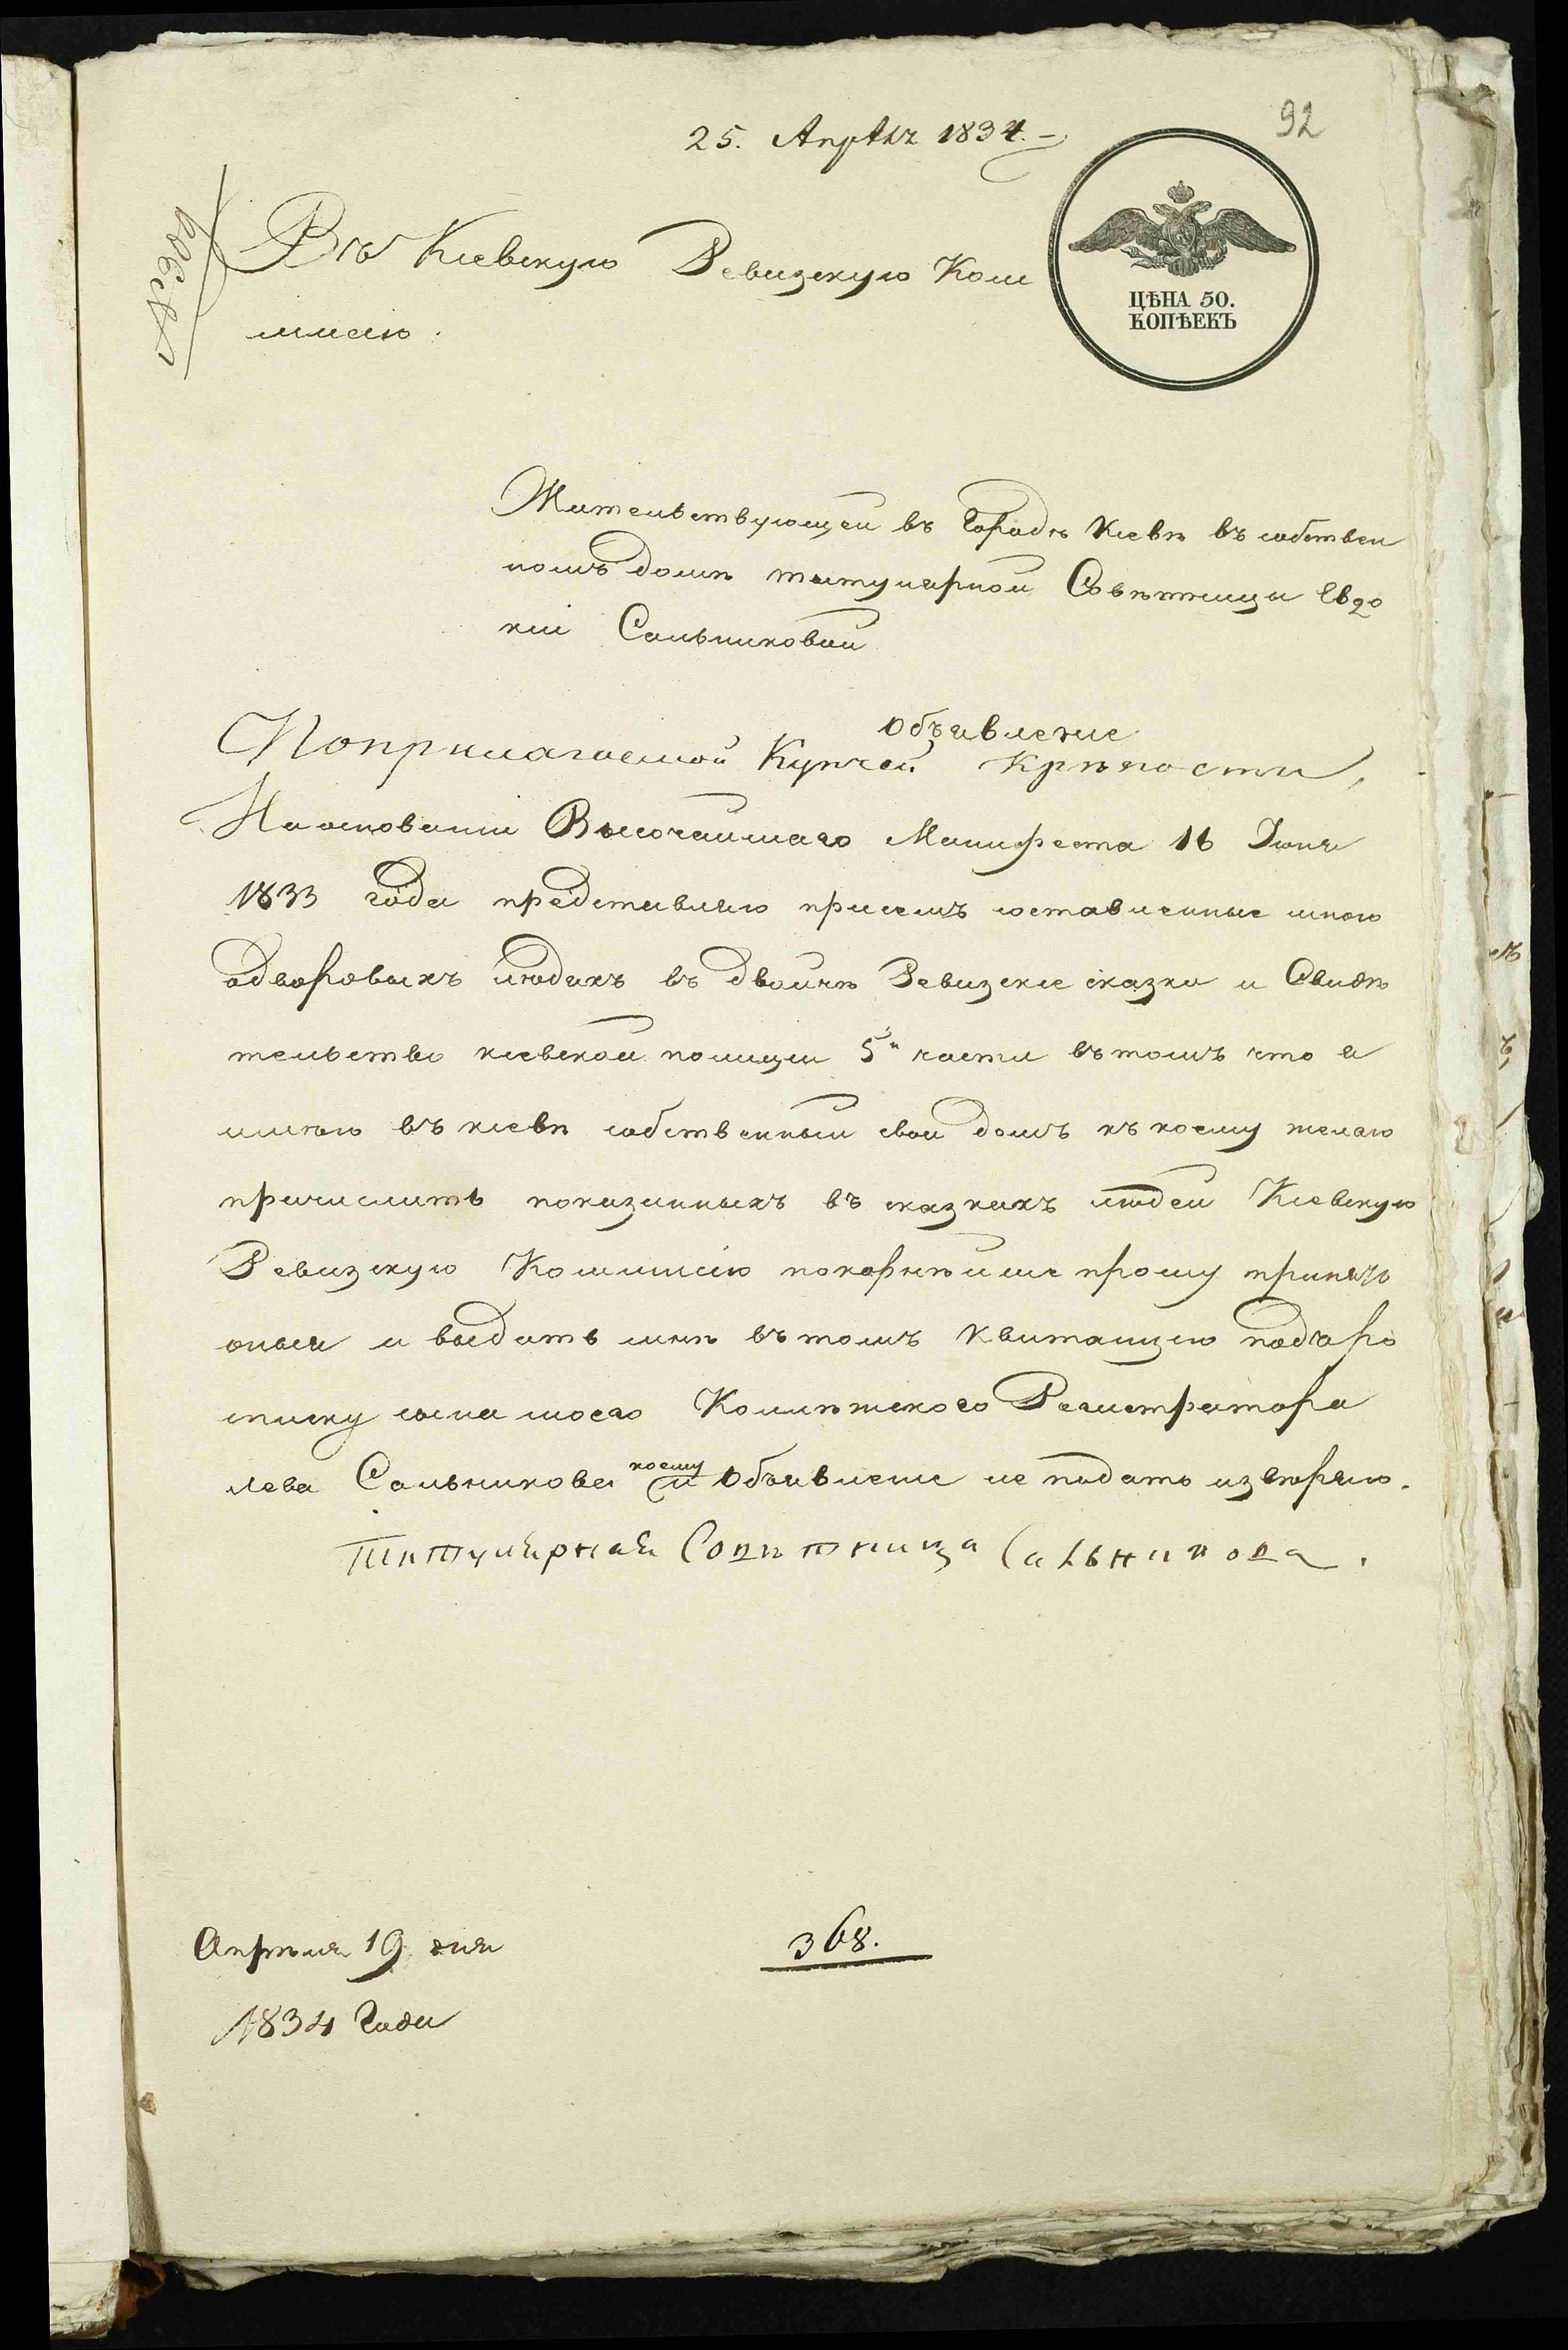 92
25. Апрѣля 1834.
№ 3809
Въ Кіевскую Ревизскую Ком
мисію.
ЦѢНА 50.
КОПѢЕКЪ
Жительствующей въ Городѣ Кіевѣ въ собствен
номъ домѣ титулярной Совѣтницы Евдо
кіи Сальниковой
Объявленіе
Поприлагаемой Купчей Крѣпости,
Наоснованіи Высочайшаго Манифеста 16 Іюня
1833 года представляю присемъ составленные мною
одворовыхъ людяхъ въ двойнѣ Ревизскіе сказки и Свидѣ
тельство кіевской полиціи 5й части втомъ что я
имѣю въ кіевѣ собственный свой домъ къ коему желаю
причислить показанныхъ въ сказкахъ людей Кіевскую
Ревизскую Коммисію покорнѣйше прошу принять
оныя и выдать мнѣ втомъ Квитанцію подъ ро
списку сына моего Коллѣжского Регистратора
Лева Сальникова коему и Объявленіе не подать извѣряю.
Титулярная Совѣтница Сальникова.
Апрѣля 19 дня
1834 Года
368.